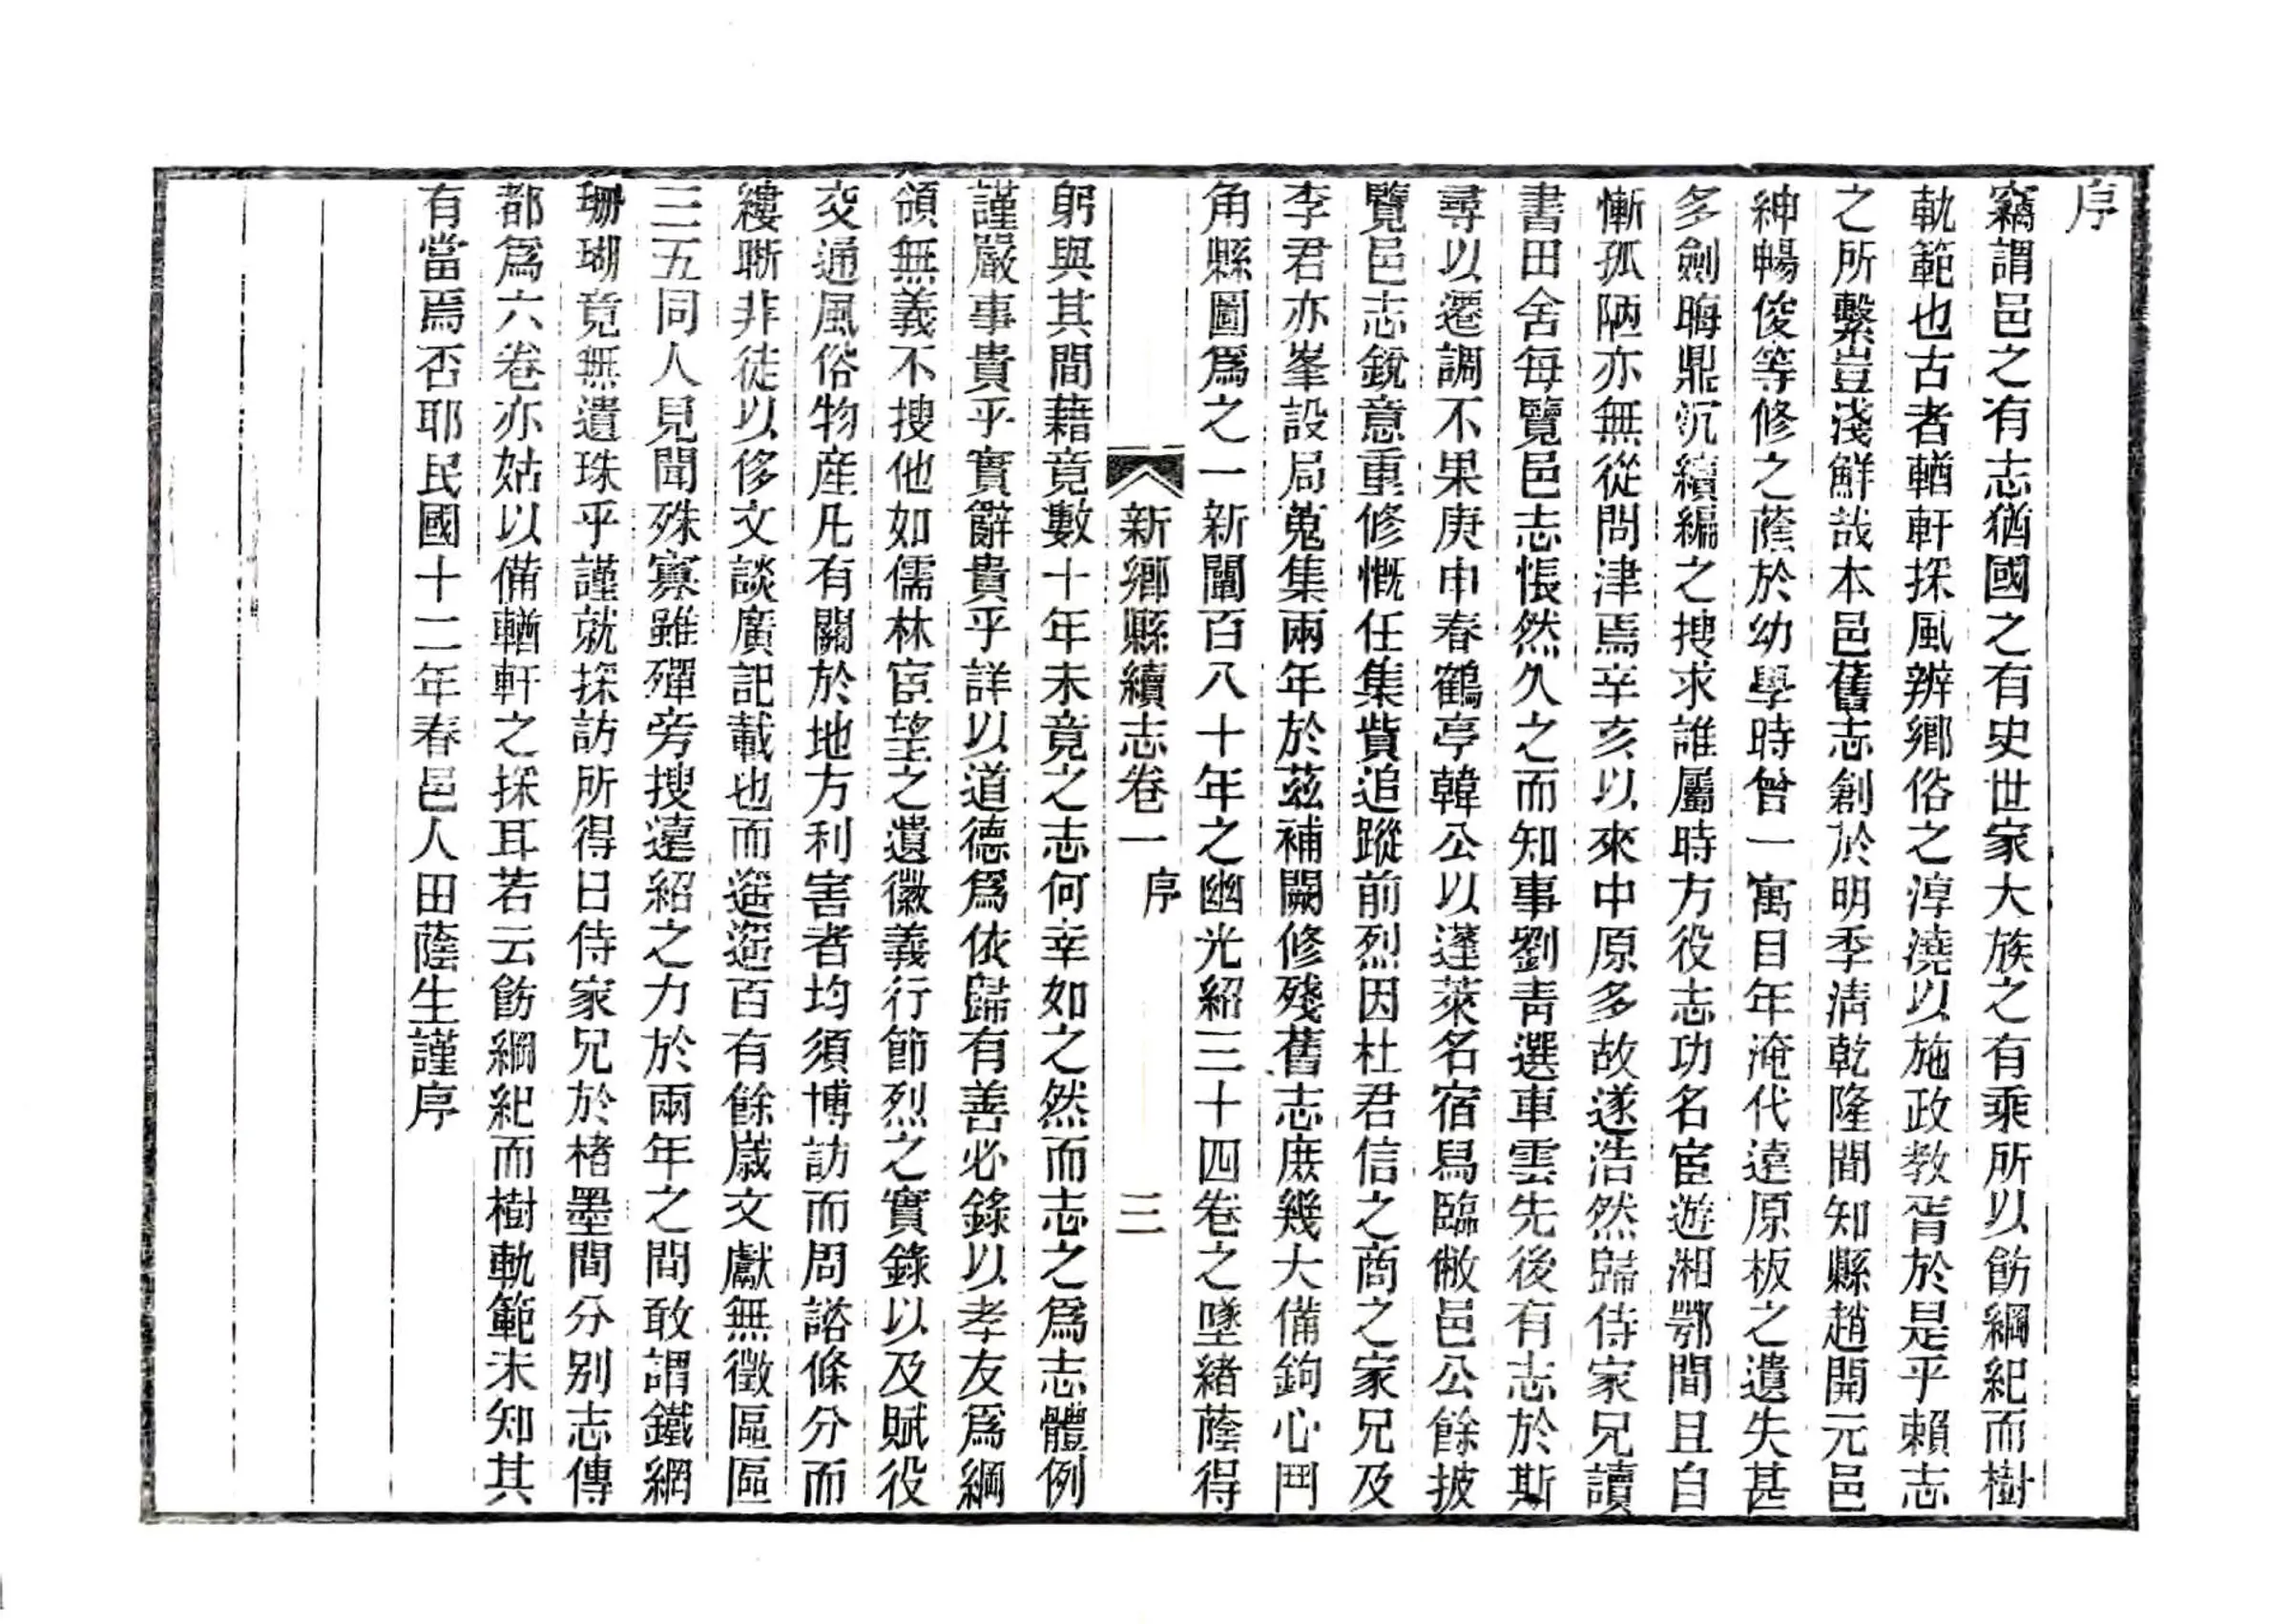 序
竊謂邑之有志猶國之有史世家大族之有乘所以飭綱紀而樹
軌範也古者輶軒採風辨鄉俗之淳澆以施政教胥於是乎賴志
之所繫豈淺鮮哉本邑舊志創於明季清乾隆間知縣趙開元邑
紳暢俊等修之蔭於幼學時曾一寓目年淹代遠原板之遺失甚
多劍晦鼎沉續編之搜求誰屬時方役志功名宦遊湘鄂間且自
慚孤陋亦無從問津焉辛亥以來中原多故遂浩然歸侍家兄讀
書田舍每覽邑志悵然久之而知事劉青選車雲先後有志於斯
尋以遷調不果庚申春鶴亭韓公以蓬萊名宿舄臨敝邑公餘披
覽邑志銳意重修慨任集貲追蹤前烈因杜君信之商之家兄及
李君亦峯設局蒐集兩年於茲補闕修殘舊志庶幾大備鉤心鬥
角縣圖爲之一新闡百八十年之幽光紹三十四卷之墜緒蔭得
新鄉縣續志卷一 序 三
躬與其間藉竟數十年未竟之志何幸如之然而志之爲志體例
謹嚴事貴乎實辭貴乎詳以道德爲依歸有善必錄以孝友爲綱
領無義不搜他如儒林宦望之遺徽義行節烈之實錄以及賦役
交通風俗物產凡有關於地方利害者均須博訪而周諮條分而
縷晰非徒以侈文談廣記載也而遥遥百有餘歲文獻無徵區區
三五同人見聞殊寡雖殫旁搜遠紹之力於兩年之間敢謂鐵網
珊瑚竟無遺珠乎謹就採訪所得日侍家兄於楮墨間分別志傳
都爲六卷亦姑以備輶軒之採耳若云飭綱紀而樹軌範未知其
有當焉否耶民國十二年春邑人田蔭生謹序